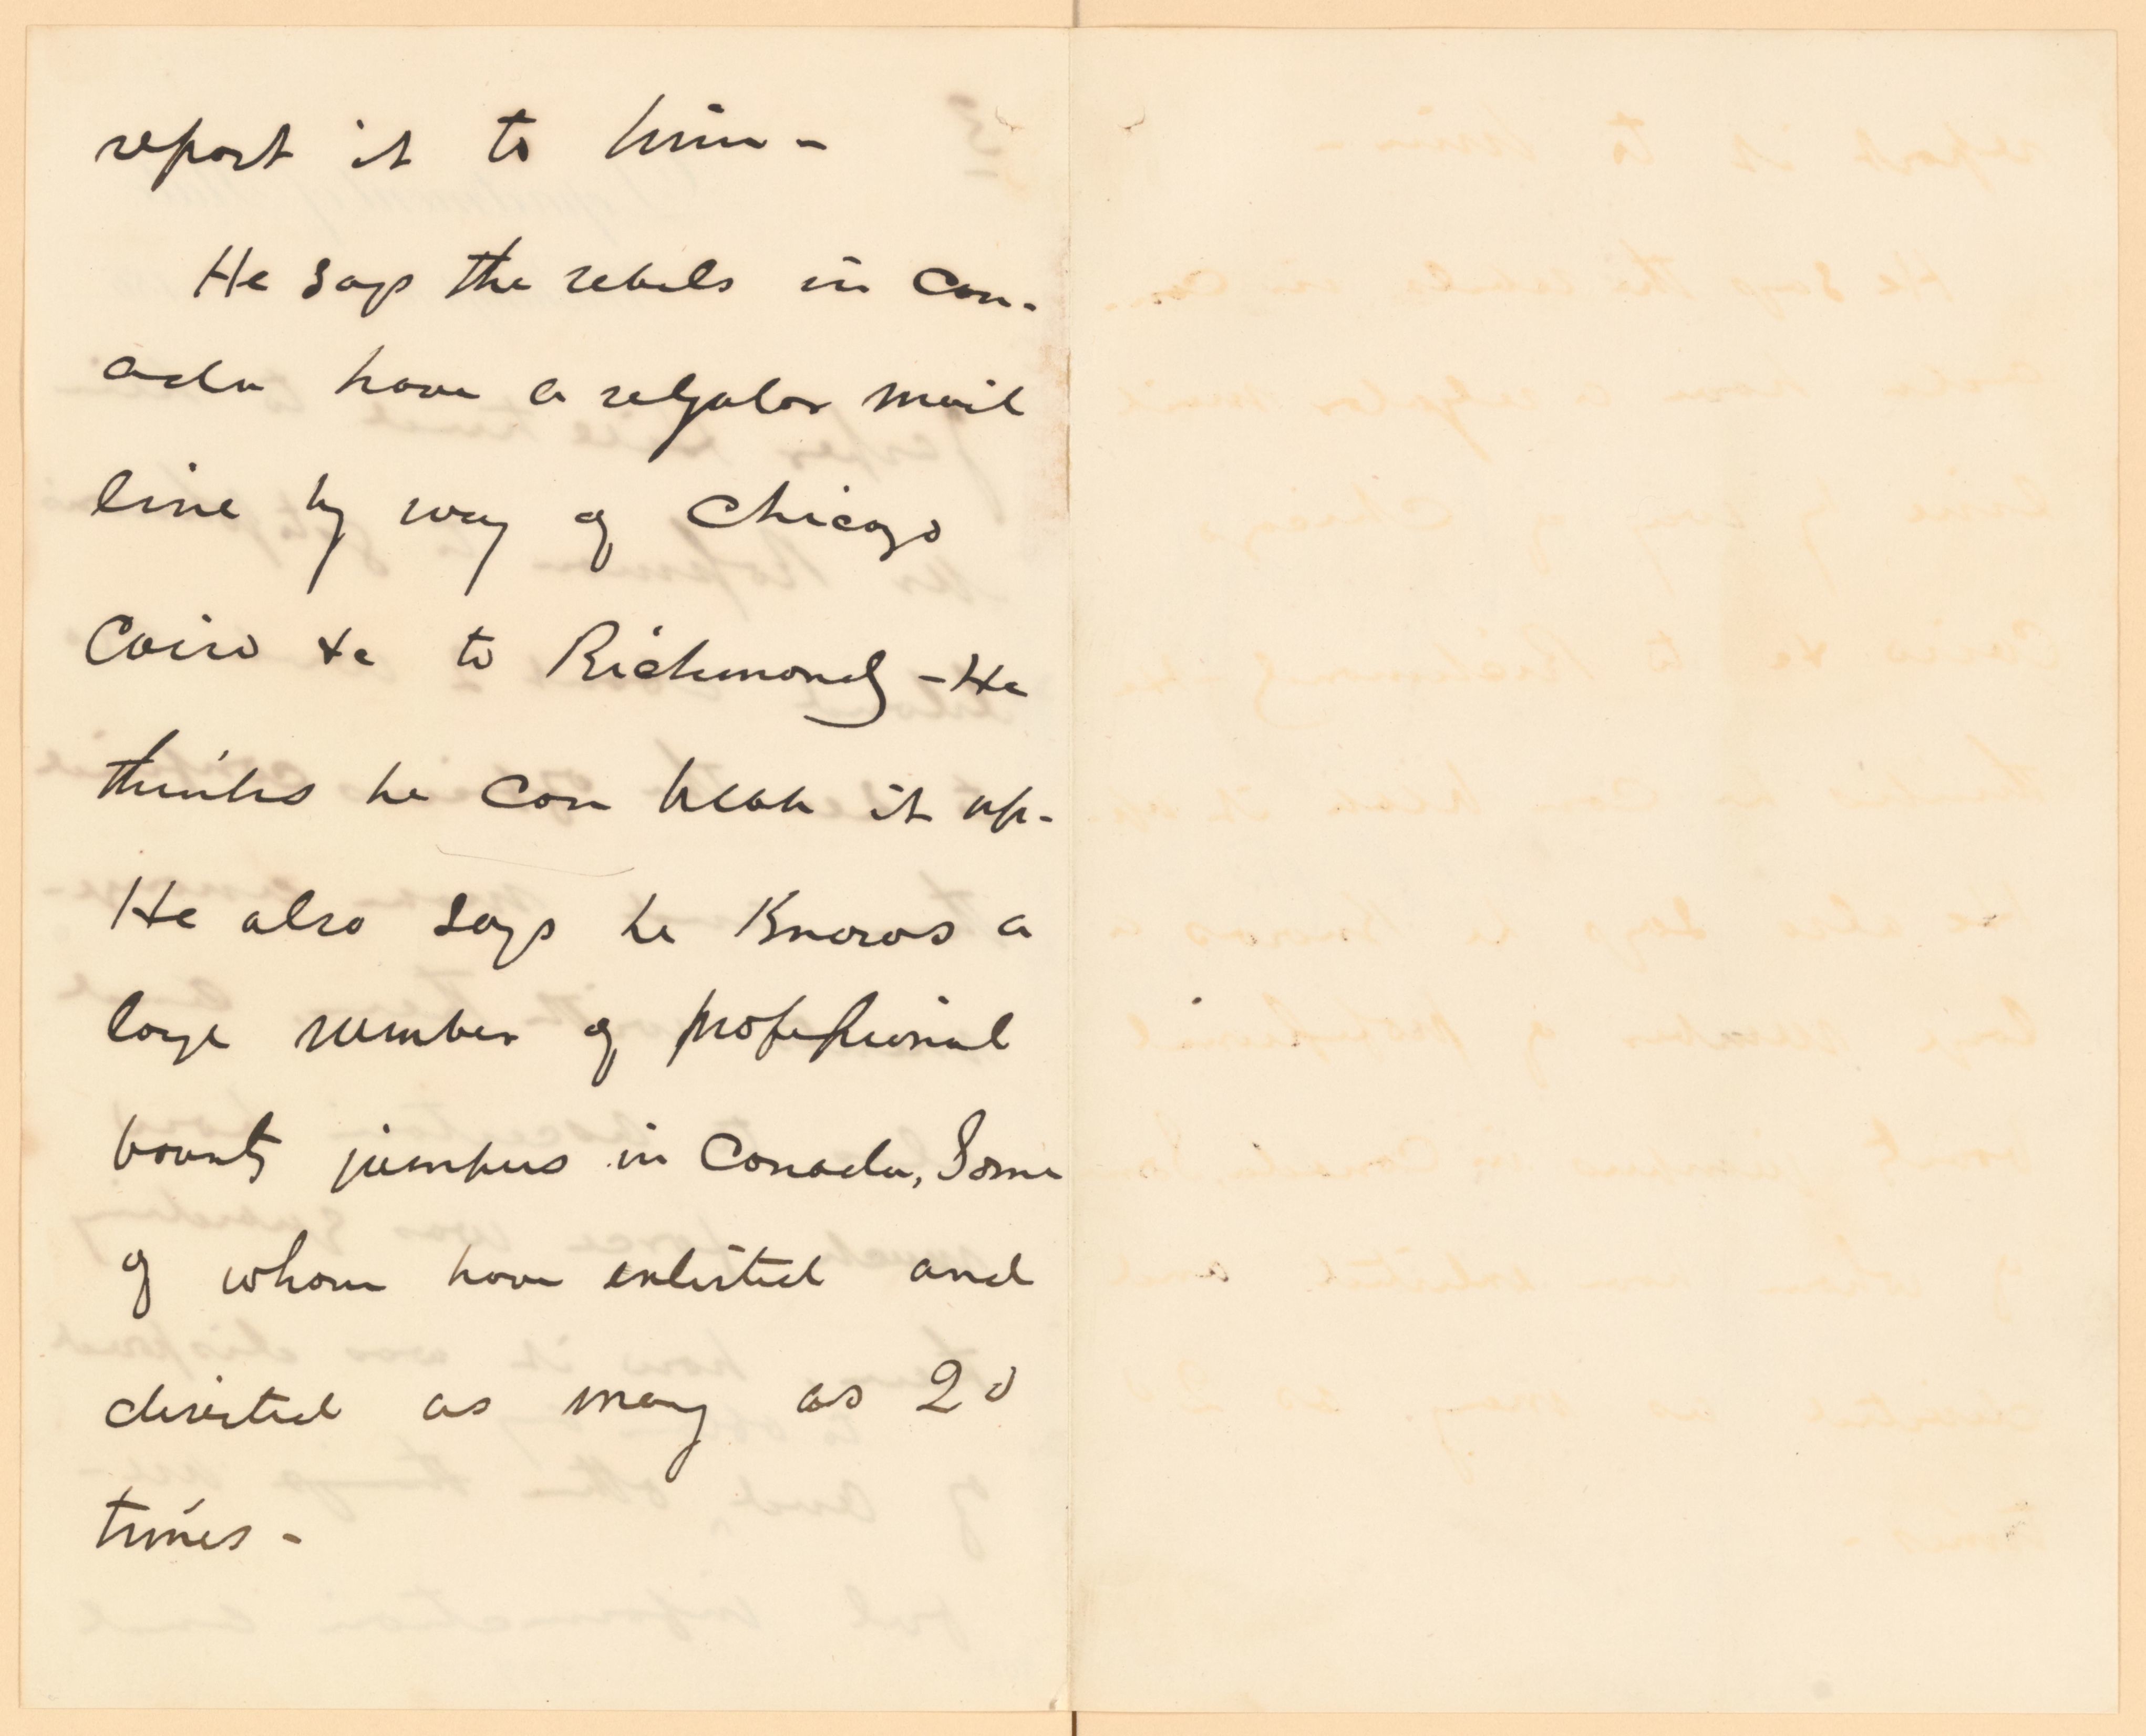 report it to him -
He says the rebels in Can-
ada have a regular mail
line by way of Chicago
Cairo &c to Richmond - He
thinks he can break it up -
He also says he knows a
large number of professional
bounty jumpers in Canada, some
of whom have enlisted and
diserted as many as 20
times -